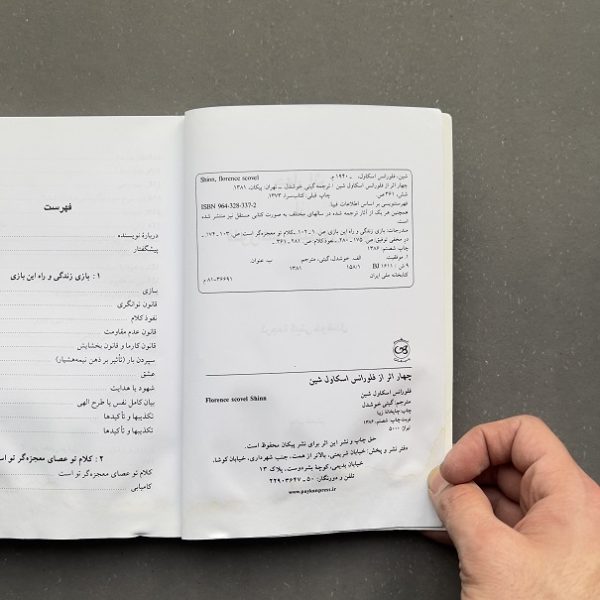 شین، فلورانس اسکاول، ـ ۱۹۴۰ م.
Shinn, florence scovel
چهار اثر از فلورانس اسکاول شین / ترجمه گیتی خوشدل ـ تهران: پیکان، ۱۳۸۱.
شش، ۳۶۱ ص.
چاپ قبلی: کتاب‌سرا، ۱۳۷۳.
ISBN 964-328-337-2
فهرستنویسی بر اساس اطلاعات فیپا
همچنین هر یک از آثار ترجمه شده در سالهای مختلف به صورت کتابی مستقل نیز منتشر شده
است
مندرجات: بازی زندگی و راه این بازی ص. ۱ـ ۱۰۲ ـ کلام تو معجزه‌گر است: ص. ۱۰۳ـ ۱۷۴ ـ
در مخفی توفیق: ص. ۱۷۵ ـ ۲۸۰ ـ نفوذ کلام: ص. ۲۸۱ ـ ۳۶۱.
چاپ ششم: ۱۳۸۶
۱. موفقیت. الف. خوشدل، گیتی، مترجم ب. عنوان.
۹ ش / ۱۶۱۱ BJ ۱۵۸/۱
۱۳۸۱
کتابخانه ملی ایران ۳۶۶۹۱-۸۱م
چهار اثر از فلورانس اسکاول شین
Florence scovel Shinn
فلورانس اسکاول شین
مترجم: گیتی خوشدل
چاپ: چاپخانه زیبا
نوبت چاپ: ششم، ۱۳۸۶
تیراژ: ۵۰۰۰
حق چاپ و نشر این اثر برای نشر پیکان محفوظ است.
دفتر نشر و پخش: خیابان شریعتی، بالاتر از همت، جنب شهرداری، خیابان گوشا،
خیابان بدیعی، کوچۀ بتیدوست، پلاک ۱۳
تلفن و دورنگار: ۵۰ ـ ۲۲۹۰۳۶۴۷
www.paykanpress.ir
فهرست
دربارۀ نویسنده
پیشگفتار
۱ : بازی زندگی و راه این بازی
بازی
قانون توانگری
نفوذ کلام
قانون عدم مقاومت
قانون کارما و قانون بخشایش
سپردن بار (تأثیر بر ذهن نیمه‌هشیار)
عشق
شهود یا هدایت
بیان کامل نفس یا طرح الهی
تکذیبها و تأکیدها
تکذیبها و تأکیدها
۲ : کلام تو عصای معجزه‌گر تو است
کلام تو عصای معجزه‌گر تو است
کامیابی